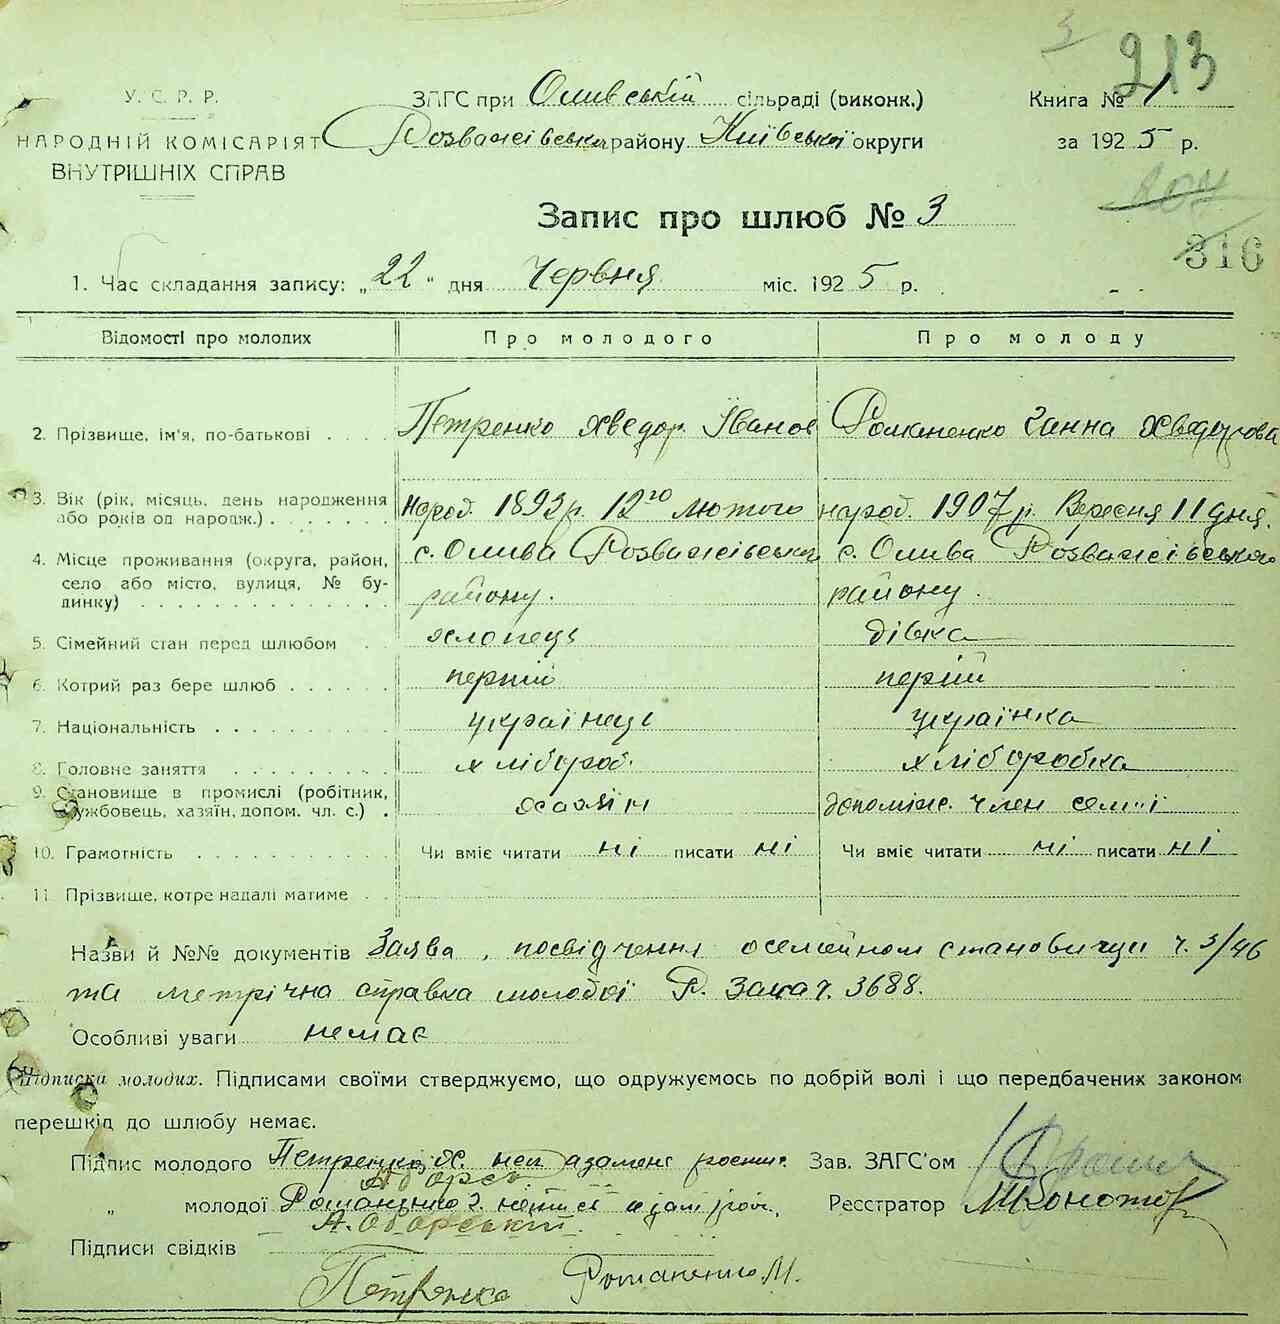 3
213
У. С. Р. Р.
НАРОДНІЙ КОМІСАРІЯТ
ВНУТРІШНІХ СПРАВ
ЗАГС при Оливській сільраді (виконк.)
Розважівська району Київської округи
Книга № 1
за 1925 р.
204
316
Запис про шлюб № 3
1. Час складання запису: „22" дня Червня міс. 1925 р.
Відомості про молодих Про молодого Про молоду
2. Прізвище, ім'я, по-батькові . . . . Петренко Хведор Іванов Романенко Ганна Хведорова
3. Вік (рік, місяць, день народження або років од народж.) . . . . . . народ. 1892 р. 12го лютого народ. 1907 р. Вересня 11 дня.
4. Місце проживання (округа, район, с. Олива Розважівськ с. Олива Розважівського
село або місто, вулиця, № бу- району. району.
динку) . . . . . . . . . . . .
5. Сімейний стан перед шлюбом . . хлопець дівка
6. Котрий раз бере шлюб . . . . . . перший перший
7. Національність . . . . . . . . . українець українка
8. Головне заняття . . . . . . . . хлібороб. хліборобка
9. Становище в промислі (робітник, службовець, хазяїн, допом. чл. с.) . хазяїн допоміж. член семьї
10. Грамотність . . . . . . . . . . Чи вміє читати ні писати ні Чи вміє читати ні писати ні
11. Прізвище, котре надалі матиме . .
Назви й №№ документів Заява, посвідчення о семейном становищи ч. 3/46
та метрічна справка молодої Р. Загса ч. 3688.
Особливі уваги немає
Підписка молодих. Підписами своїми стверджуємо, що одружуємось по добрій волі і що передбачених законом
перешкід до шлюбу немає.
Підпис молодого Петренко Х. Зав. ЗАГС'ом
„ молодої Романенко Г. Реєстратор
А. Оборський
Підписи свідків
Петренко Романенко М.